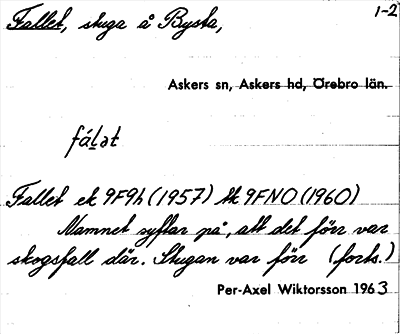 Fallet, stuga å Bysta, 1-2
Askers sn, Askers hd, Örebro län.
fáḷət
Fallet ek 9F9h (1957) tk 9FNO (1960)
Namnet syftar på, att det förr var
skogsfall där. Stugan var förr (forts.)
Per-Axel Wiktorsson 1963